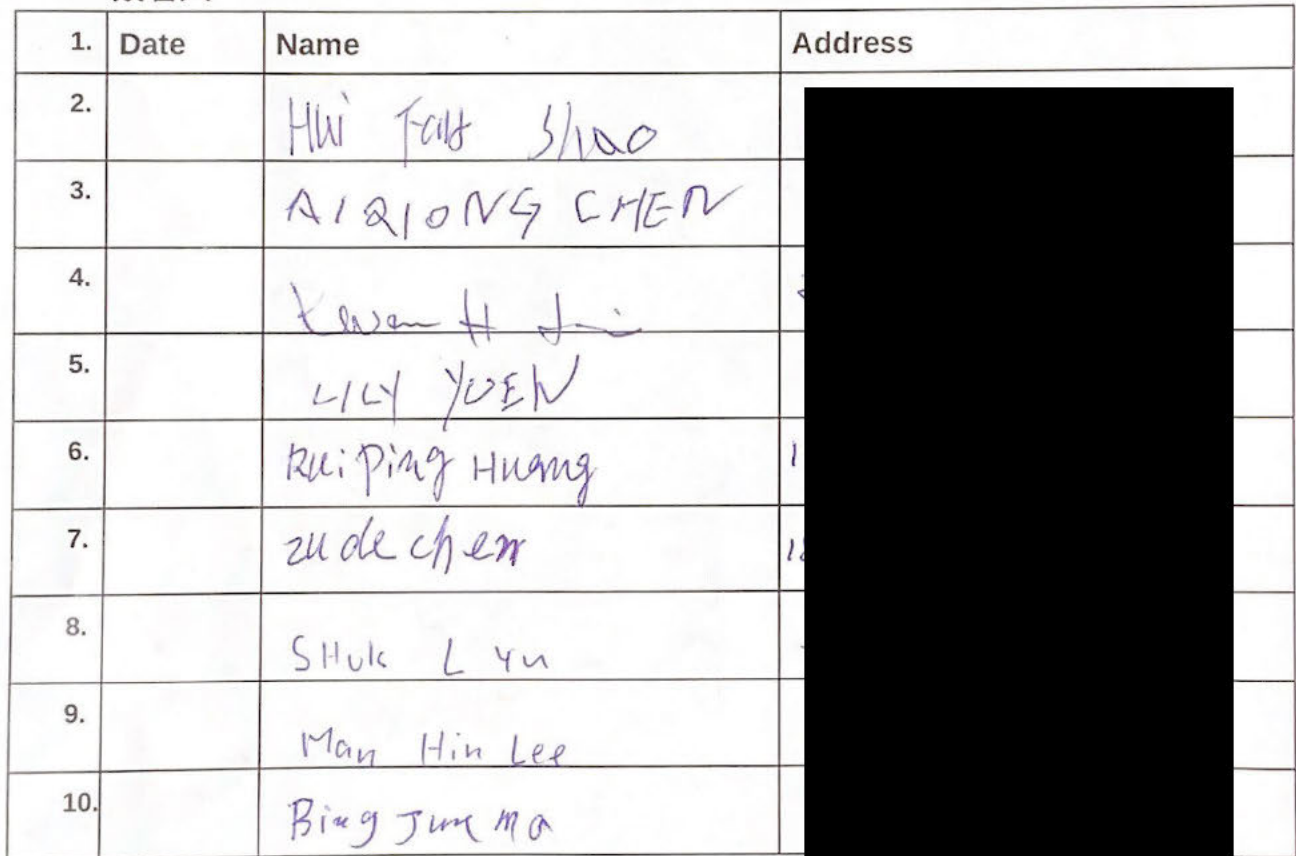 1. Date Name Address
2. Hui Shao
3. AIQIONG CHEN
4. Kwan H
5. LILY YUEN
6. Rui Ping Huang
7. zude chen
8. SHuk L Yu
9. Man Hin Lee
10. Bing Jun ma